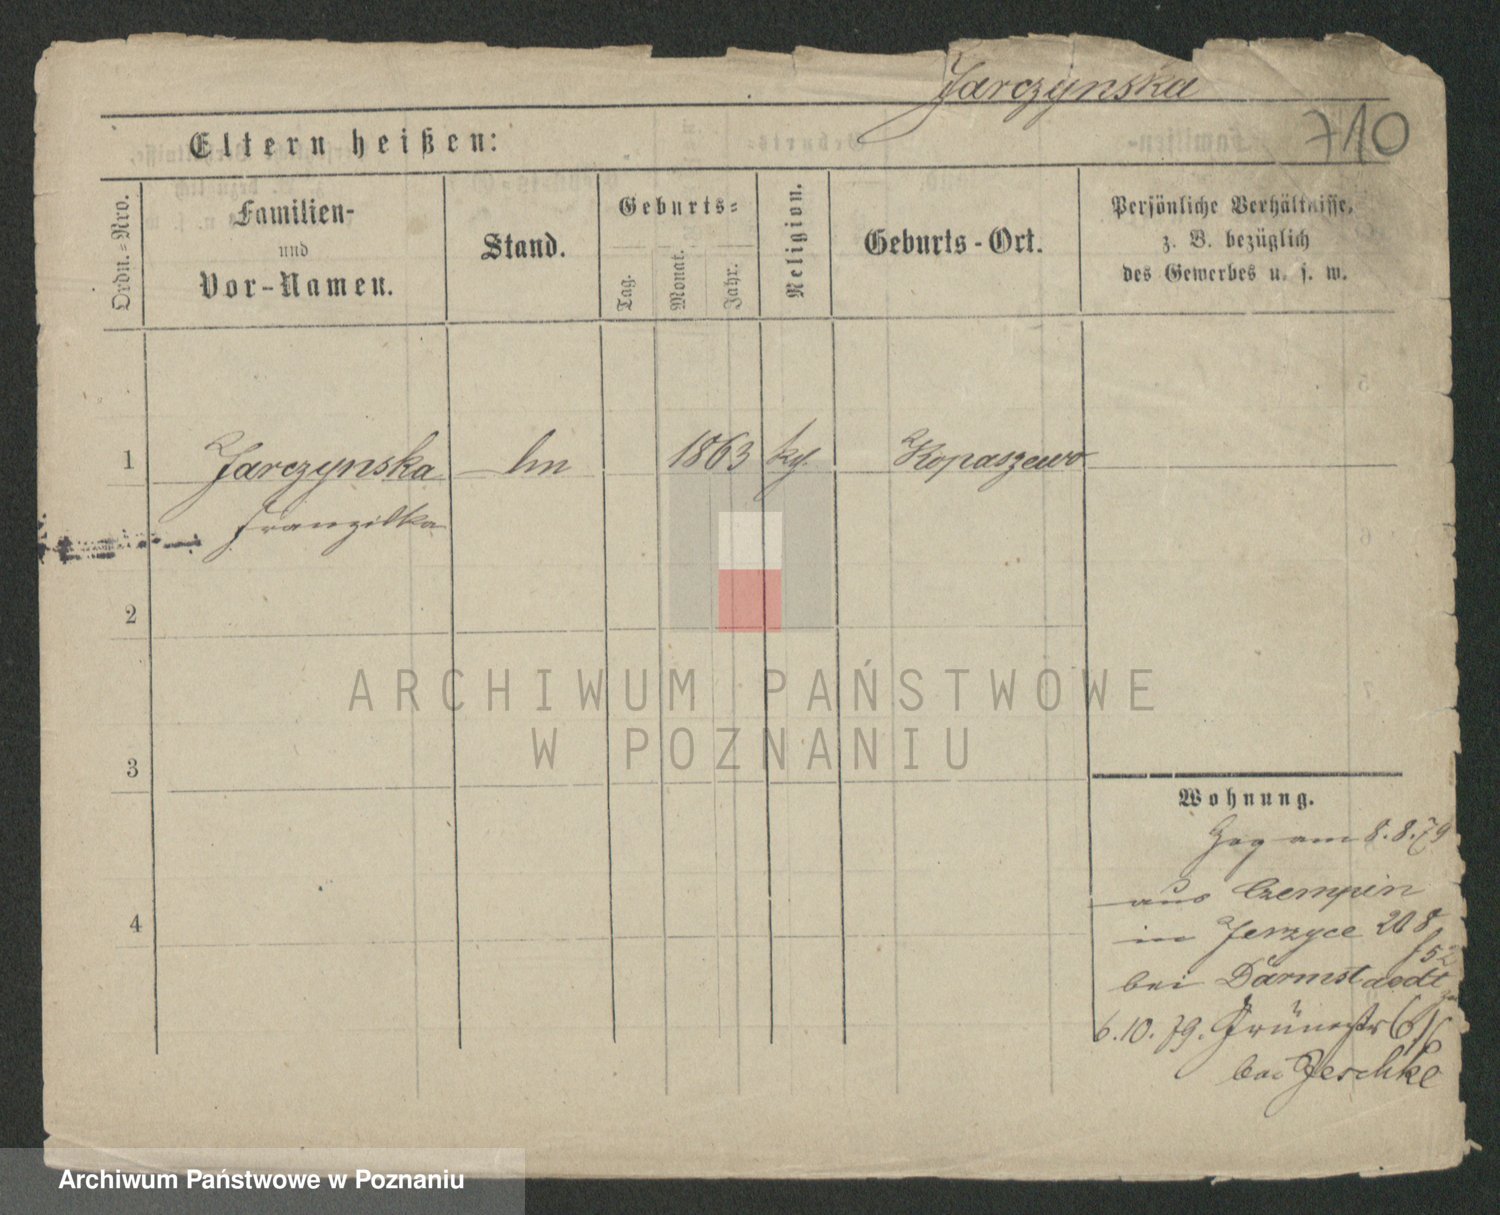 Jarczynska
710
Eltern heißen:
Ordn.-Nro.
Familien-
und
Vor-Namen.
Stand.
Geburts-
Tag.
Monat.
Jahr.
Religion.
Geburts-Ort.
Persönliche Verhältnisse,
z. B. bezüglich
des Gewerbes u. s. w.
1 Jarczynska 1863 Kopaszewo
2
3
4
ARCHIWUM PAŃSTWOWE
W POZNANIU
Wohnung.
Zog am 8.8.79
aus Czempin
in Jerzyce 208
bei Darmstaedt
6.10.79. Grünestr 6
bei Jeschke
Archiwum Państwowe w Poznaniu